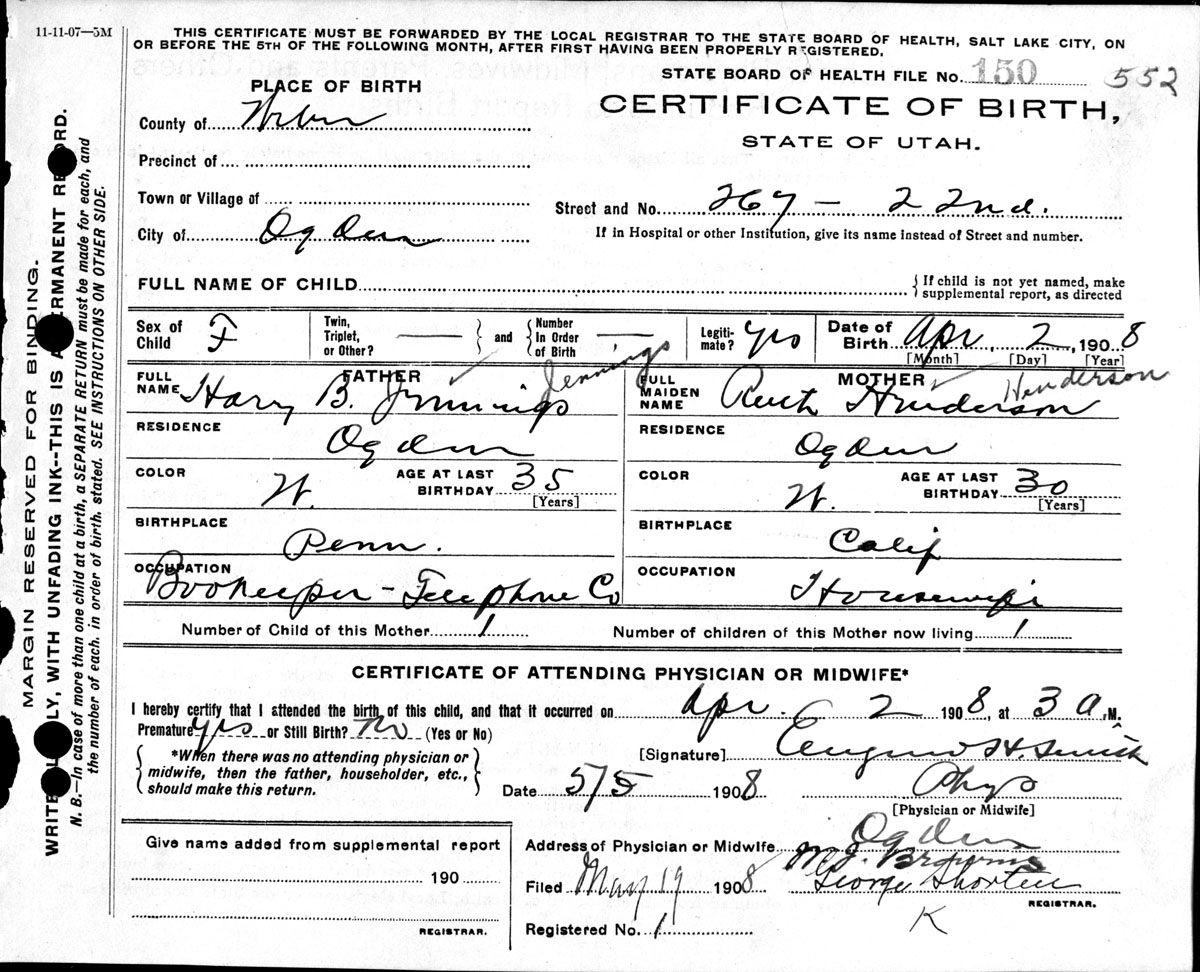 11-11-07—5M
THIS CERTIFICATE MUST BE FORWARDED BY THE LOCAL REGISTRAR TO THE STATE BOARD OF HEALTH, SALT LAKE CITY, ON
OR BEFORE THE 5TH OF THE FOLLOWING MONTH, AFTER FIRST HAVING BEEN PROPERLY REGISTERED.
STATE BOARD OF HEALTH FILE No. 150 552
PLACE OF BIRTH
CERTIFICATE OF BIRTH,
STATE OF UTAH.
County of Weber
Precinct of
Town or Village of
Street and No. 267 — 22nd.
City of Ogden
If in Hospital or other Institution, give its name instead of Street and number.
FULL NAME OF CHILD
{If child is not yet named, make
supplemental report, as directed
Sex of Child F
Twin, Triplet, or Other? — and Number In Order of Birth —
Legitimate? yes
Date of Birth Apr. 2, 1908
[Month] [Day] [Year]
FATHER
FULL NAME Harry B. Jennings Jennings
MOTHER
FULL MAIDEN NAME Ruth Henderson Henderson
RESIDENCE Ogden
RESIDENCE Ogden
COLOR W. AGE AT LAST BIRTHDAY 35 [Years]
COLOR W. AGE AT LAST BIRTHDAY 30 [Years]
BIRTHPLACE Penn.
BIRTHPLACE Calif
OCCUPATION Bookeeper - Telephone Co
OCCUPATION Housewife
Number of Child of this Mother 1
Number of children of this Mother now living 1
CERTIFICATE OF ATTENDING PHYSICIAN OR MIDWIFE*
I hereby certify that I attended the birth of this child, and that it occurred on Apr. 2 1908, at 3 A.M.
Premature yes or Still Birth? No (Yes or No)
[Signature] H. Smith
*When there was no attending physician or
midwife, then the father, householder, etc.,
should make this return.
Date 5/5 1908 Phys
[Physician or Midwife]
Give name added from supplemental report
190
REGISTRAR.
Address of Physician or Midwife Ogden
M. J.
Filed May 19 1908 George Shorten
REGISTRAR.
Registered No. 1
K
MARGIN RESERVED FOR BINDING.
WRITE PLAINLY, WITH UNFADING INK--THIS IS A PERMANENT RECORD.
N. B.—In case of more than one child at a birth, a SEPARATE RETURN must be made for each, and
the number of each, in order of birth, stated. SEE INSTRUCTIONS ON OTHER SIDE.